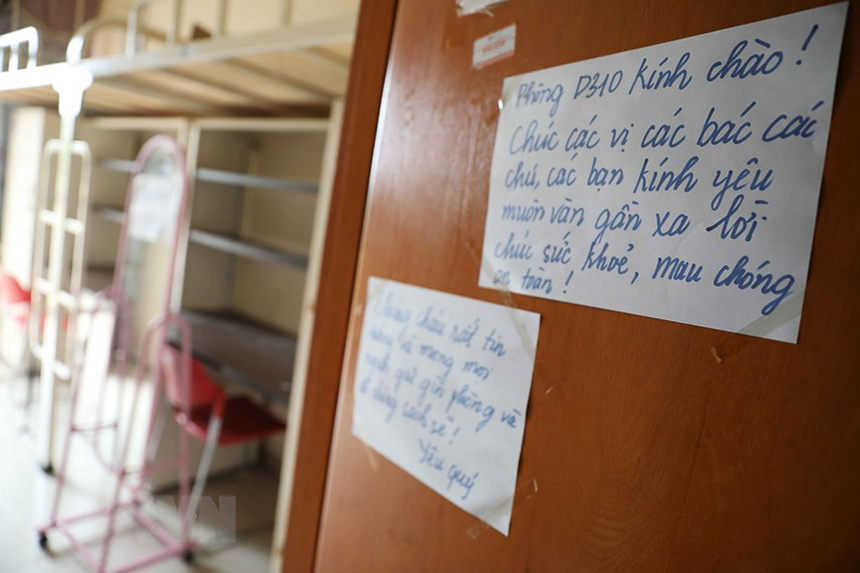 Phòng P310 kính chào!
Chúc các vị các bác các
chú, các bạn kính yêu
muôn vàn gần xa lời
chúc sức khoẻ, mau chóng
an toàn!
Chúng cháu rất tin
mong mọi
người giữ gìn phòng và
đồ dùng sạch sẽ!
Yêu quý